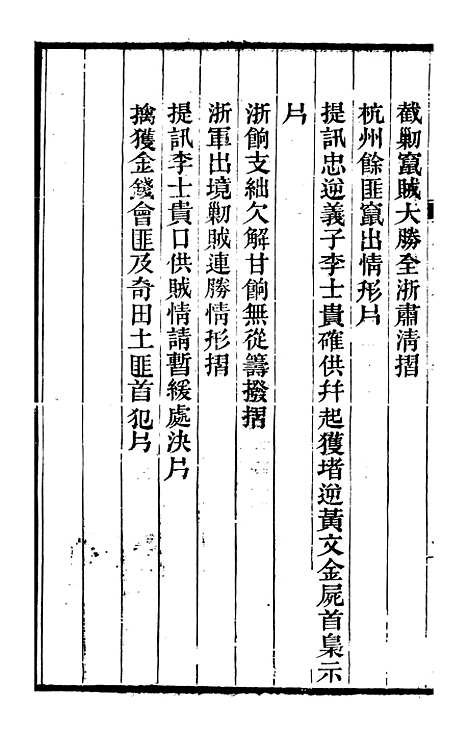 截勦竄賊大勝全浙肅清摺
杭州餘匪竄出情形片
提訊忠逆義子李士貴確供幷起獲堵逆黃文金屍首梟示
片
浙餉支絀欠解甘餉無從籌撥摺
浙軍出境勦賊連勝情形摺
提訊李士貴口供賊情請暫緩處決片
擒獲金錢會匪及奇田土匪首犯片